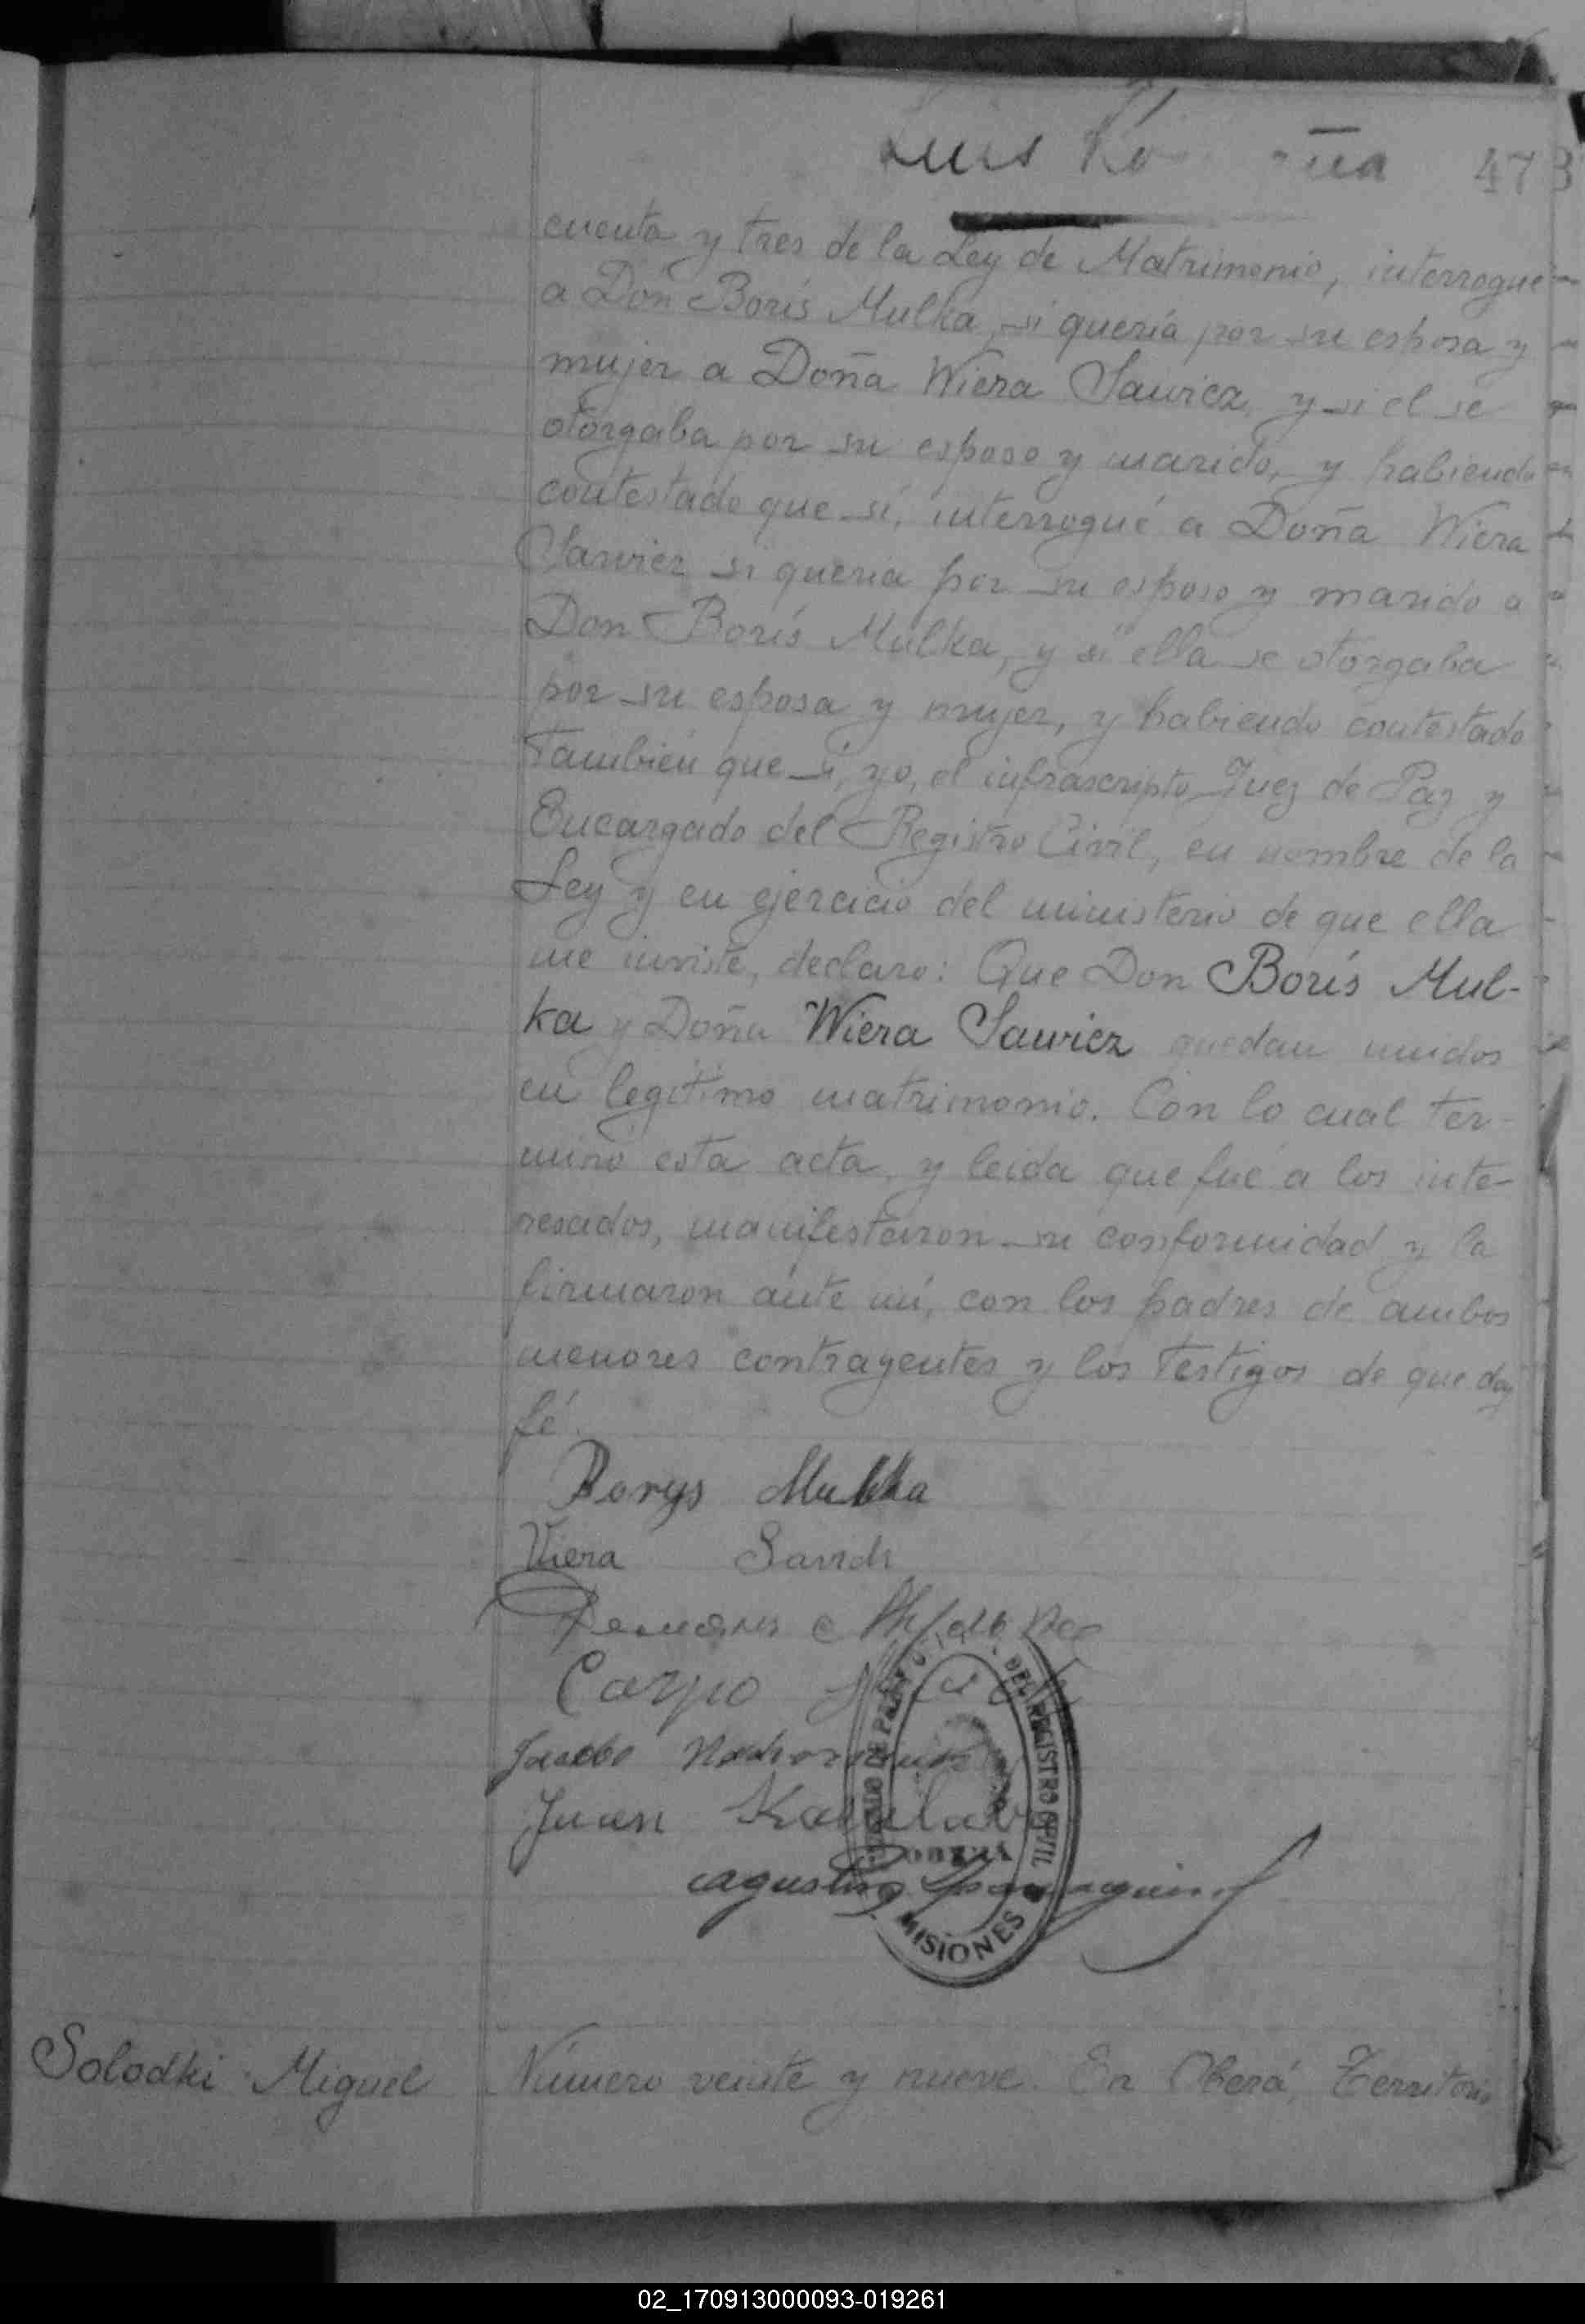 Luis
473
cuenta y tres de la Ley de Matrimonio, interrogue
a Don Borís Mulka, si quería por su esposa y
mujer a Doña Wiera Sawicz, y si el se
otorgaba por su esposo y marido, y habiendo
contestado que sí, interrogué a Doña Wiera
Sawicz si quería por su esposo y marido a
Don Borís Mulka, y si ella se otorgaba
por su esposa y mujer, y habiendo contestado
también que sí, yo, el infrascripto Juez de Paz y
Encargado del Registro Civil, en nombre de la
Ley y en ejercicio del ministerio de que ella
me inviste, declaro: Que Don Borís Mul-
ka y Doña Wiera Sawicz quedan unidos
en legítimo matrimonio. Con lo cual ter-
minó esta acta, y leída que fué a los inte-
resados, manifestaron su conformidad y la
firmaron ánte mí, con los padres de ambos
menores contrayentes y los testigos de que doy
fé.
Borys Mulka
Viera
Carpo
Jacobo
Juan
Agustin
DE PAZ DEL REGISTRO CIVIL
MISIONES
Solodki Miguel
Número veinte y nueve. En Oberá, Territorio
02_170913000093-019261